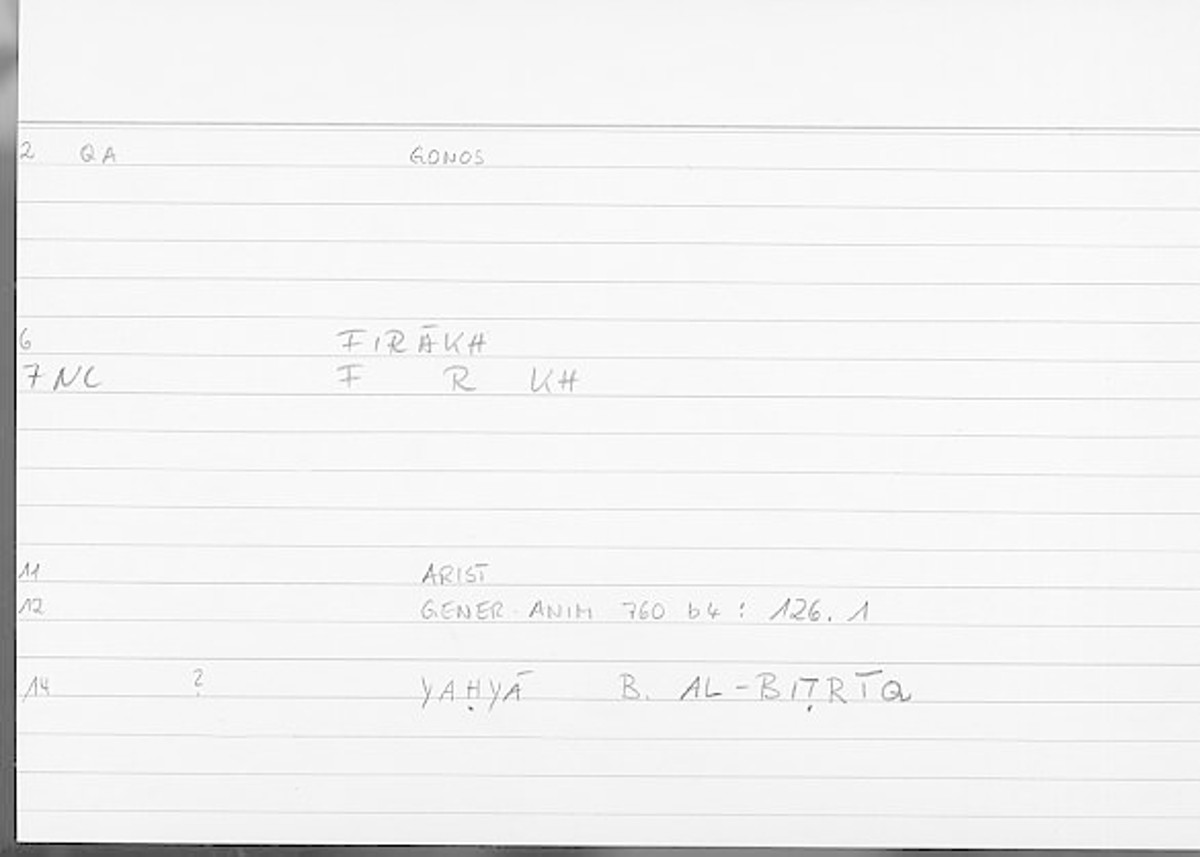 2 QA GONOS
6 FIRĀKH
7 NC F R KH
11 ARIST
12 GENER. ANIM 760 b4 : 126. 1
14 ? YAḤYĀ B. AL-BIṬRĪQ